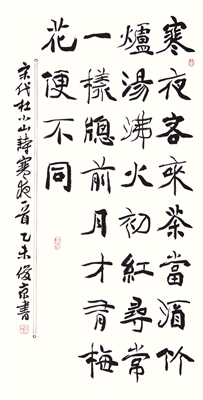 寒夜客來茶當酒竹
爐湯沸火初紅尋常
一樣牕前月才有梅
花便不同
宋代杜小山詩寒夜一首乙未俊京書